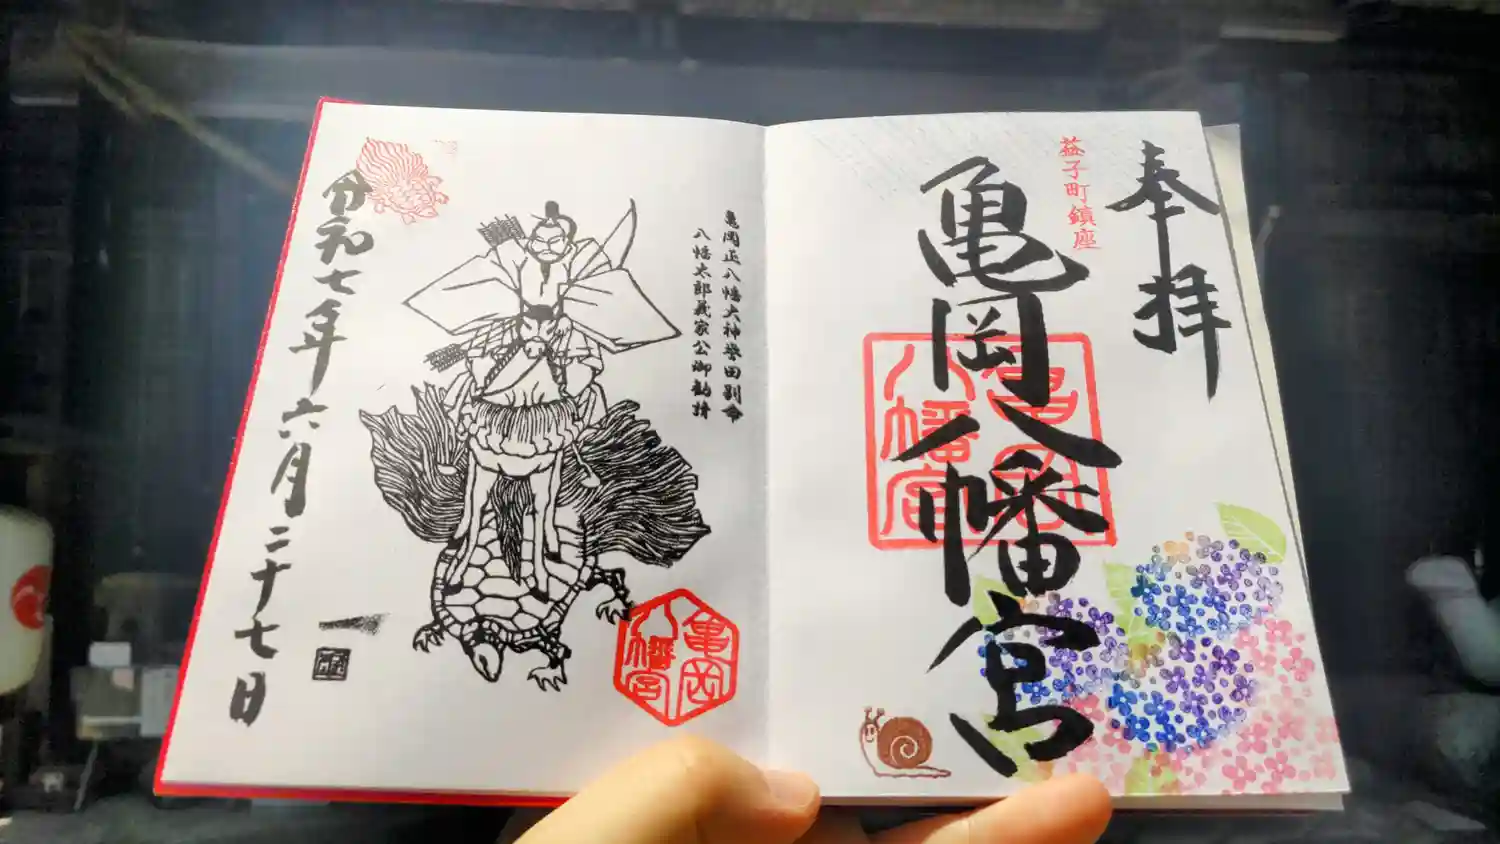 奉拝
益子町鎮座
亀岡八幡宮
亀岡八幡宮
亀岡正八幡大神誉田別命
八幡太郎義家公御勧請
亀岡八幡宮
令和七年六月二十七日